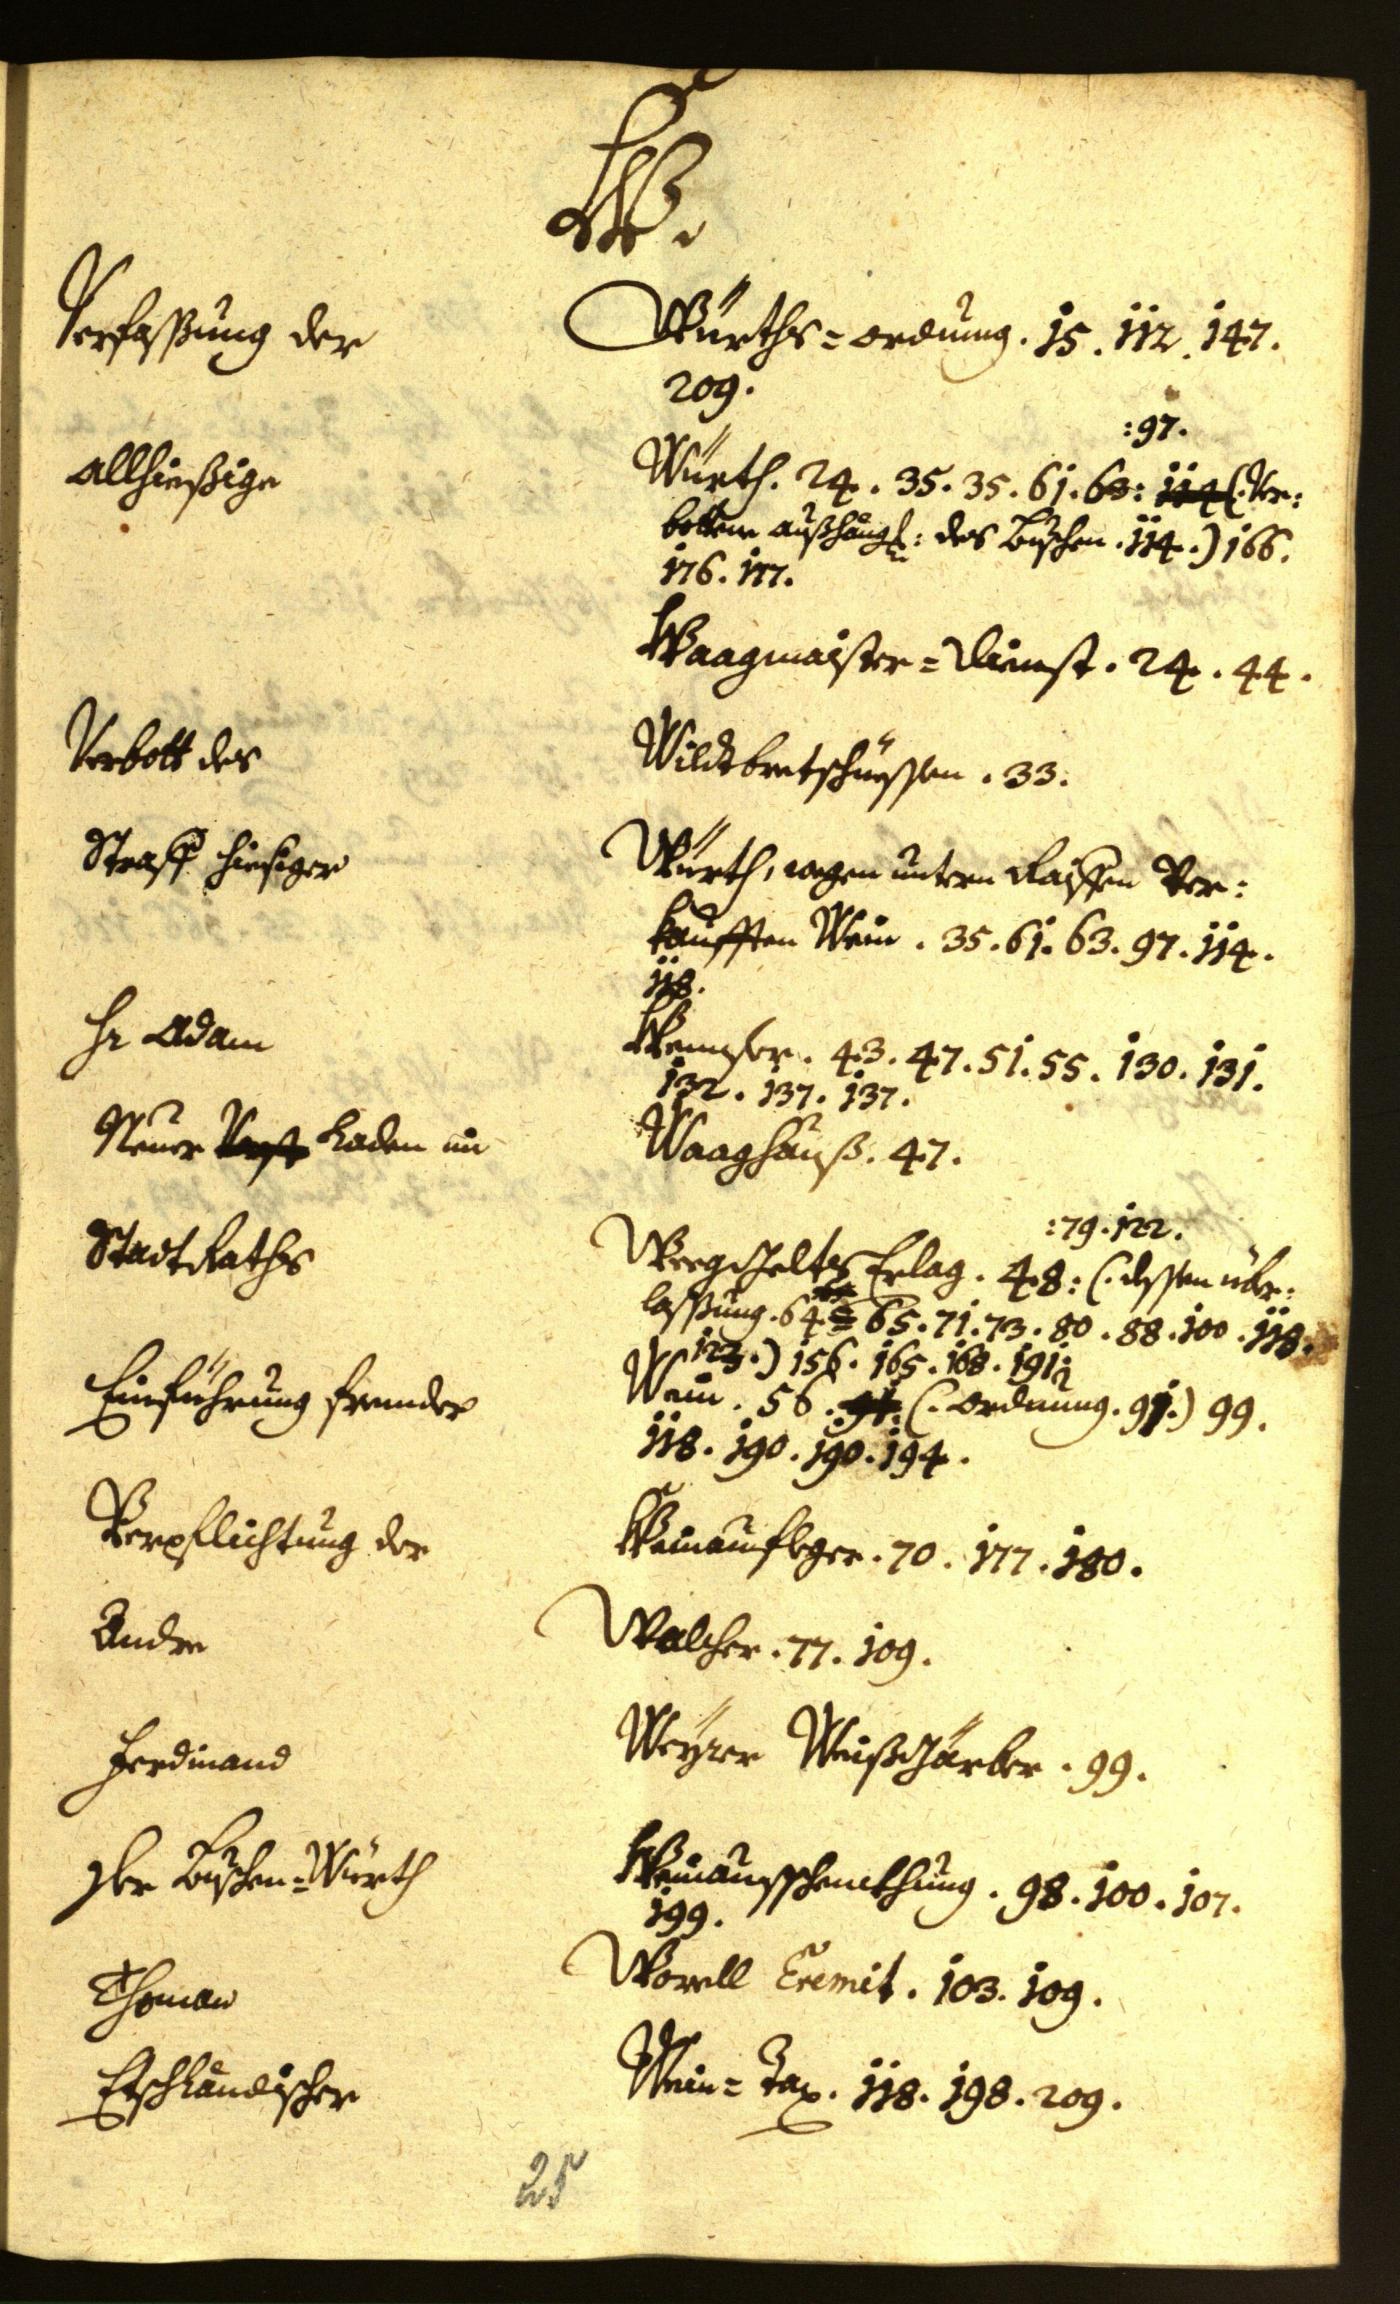 W.
Verfassung der Würths=ordnung. 15. 112. 147.
209.
:97.
allhießige Würth. 24. 35. 35. 61. 63: 114 (.Ver:
bottene außhäng: des Buschen. 114.) 166.
176. 177.
Waagmaister=Dienst. 24. 44.
Verbott des Wildtbretschüessen. 33.
Straff hiesiger Würth, wegen untern Raiffen Ver:
kaufften Wein. 35. 61. 63. 97. 114.
118.
Hr Adam Wenser. 43. 47. 51. 55. 130. 131.
132. 137. 137.
Neuer Laden im Waaghauß. 47.
:79. 122.
Stadt Raths Weeggelts Erlag. 48: (. dessen über:
lassung. 64. 65. 71. 73. 80. 88. 100. 118.
123.) 156. 165. 168. 191.
Einführung frembder Wein. 56. 91: (. ordnung. 91.) 99.
118. 190. 190. 194.
Verpflichtung der Weinaufleger. 70. 177. 180.
Andre Walcher. 77. 109.
Ferdinand Weyrer Weißgärber. 99.
Der Buschen=Würth Weinausschenkhung. 98. 100. 107.
199.
Thoman Worell Eremit. 103. 109.
Etschländischer Wein=Tax. 118. 198. 209.
25